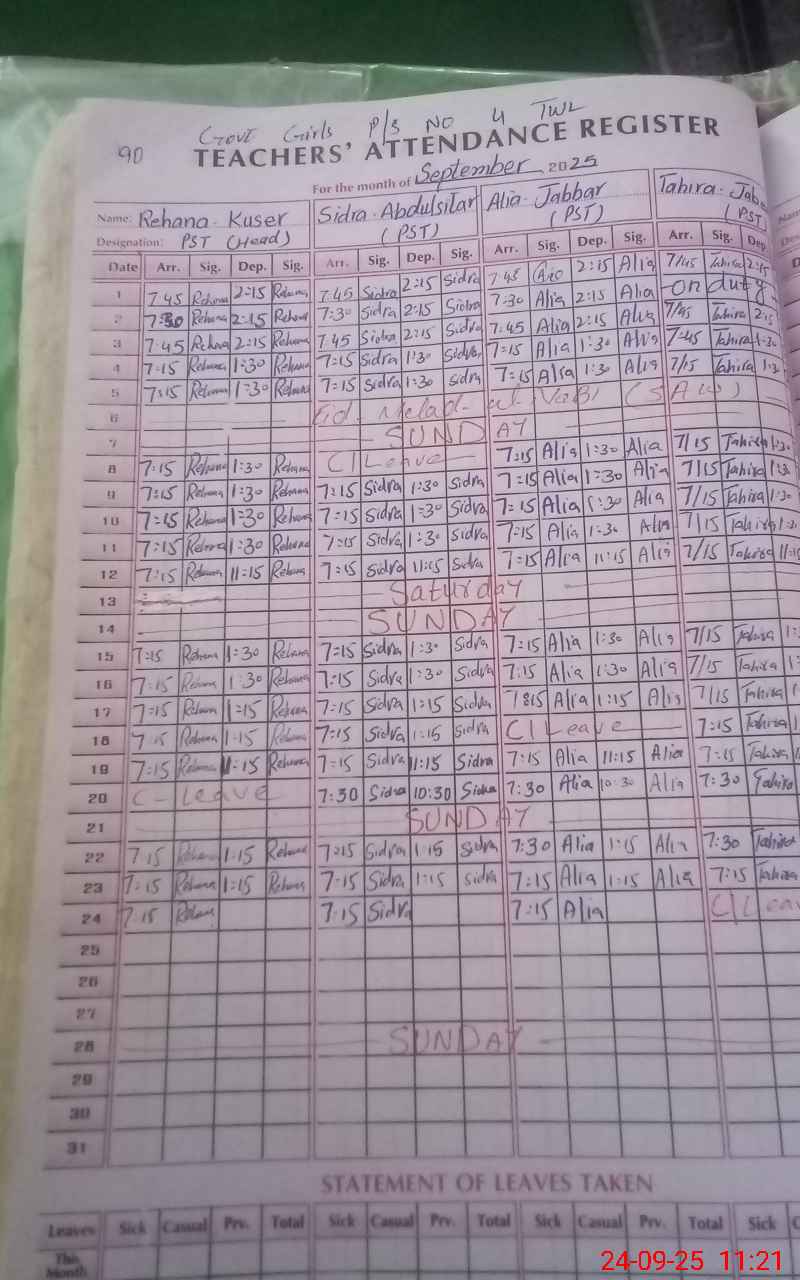 90 Govt Girls P/S NO 4 TWL
TEACHERS' ATTENDANCE REGISTER
For the month of September 2025
Name: Rehana Kuser Sidra Abdulsitar Alia Jabbar Tahira Jab
Designation: PST (Head) (PST) (PST) (PST)
Date Arr. Sig. Dep. Sig. Arr. Sig. Dep. Sig. Arr. Sig. Dep. Sig. Arr. Sig. Dep
1 7:45 Rehana 2:15 Rehana 7:45 Sidra 2:15 Sidra 7:45 2:15 Alia 7/45 Tahira 2:15
2 7:30 Rehana 2:15 Rehana 7:30 Sidra 2:15 Sidra 7:30 Alia 2:15 Alia on duty
3 7:45 Rehana 2:15 Rehana 7:45 Sidra 2:15 Sidra 7:45 Alia 2:15 Alia 7/45 Tahira 2:15
4 7:15 Rehana 1:30 Rehana 7=15 Sidra 1:30 Sidra 7=15 Alia 1:30 Alia 7=45 Tahira 1:3
5 7:15 Rehana 1:30 Rehana 7=15 Sidra 1:30 Sidra 7=15 Alia 1:30 Alia 7/15 Tahira 1:3
6 Eid Melad-ul-Nabi (SAW)
7 SUNDAY
8 7:15 Rehana 1:30 Rehana C/Leave 7:15 Alia 1:30 Alia 7/15 Tahira 1:30
9 7=15 Rehana 1:30 Rehana 7=15 Sidra 1:30 Sidra 7=15 Alia 1=30 Alia 7/15 Tahira 1:3
10 7=15 Rehana 1=30 Rehana 7=15 Sidra 1=30 Sidra 7=15 Alia 1:30 Alia 7/15 Tahira 1:30
11 7:15 Rehana 1:30 Rehana 7=15 Sidra 1:30 Sidra 7=15 Alia 1:30 Alia 7/15 Tahira 1:
12 7:15 Rehana 11=15 Rehana 7=15 Sidra 11:15 Sidra 7=15 Alia 11:15 Alia 7/15 Tahira 11=
13 Saturday
14 SUNDAY
15 7=15 Rehana 1=30 Rehana 7=15 Sidra 1:30 Sidra 7=15 Alia 1:30 Alia 7/15 Tahira 1:
16 7:15 Rehana 1:30 Rehana 7=15 Sidra 1:30 Sidra 7:15 Alia 1:30 Alia 7/15 Tahira 1:
17 7=15 Rehana 1=15 Rehana 7=15 Sidra 1:15 Sidra 7:15 Alia 1:15 Alia 7/15 Tahira 1
18 7:15 Rehana 1:15 Rehana 7=15 Sidra 1:15 Sidra C/Leave 7=15 Tahira 1
19 7=15 Rehana 11:15 Rehana 7=15 Sidra 11:15 Sidra 7:15 Alia 11:15 Alia 7=15 Tahira 1
20 C-Leave 7:30 Sidra 10:30 Sidra 7:30 Alia 10:30 Alia 7:30 Tahira
21 SUNDAY
22 7:15 Rehana 1:15 Rehana 7=15 Sidra 1:15 Sidra 7:30 Alia 1:15 Alia 7:30 Tahira
23 7=15 Rehana 1=15 Rehana 7=15 Sidra 1:15 Sidra 7:15 Alia 1:15 Alia 7:15 Tahira
24 7=15 Rehana 7:15 Sidra 7:15 Alia C/Leav
25
26
27
28 SUNDAY
29
30
31
STATEMENT OF LEAVES TAKEN
Leaves Sick Casual Prv. Total Sick Casual Prv. Total Sick Casual Prv. Total Sick C
This
Month
24-09-25 11:21